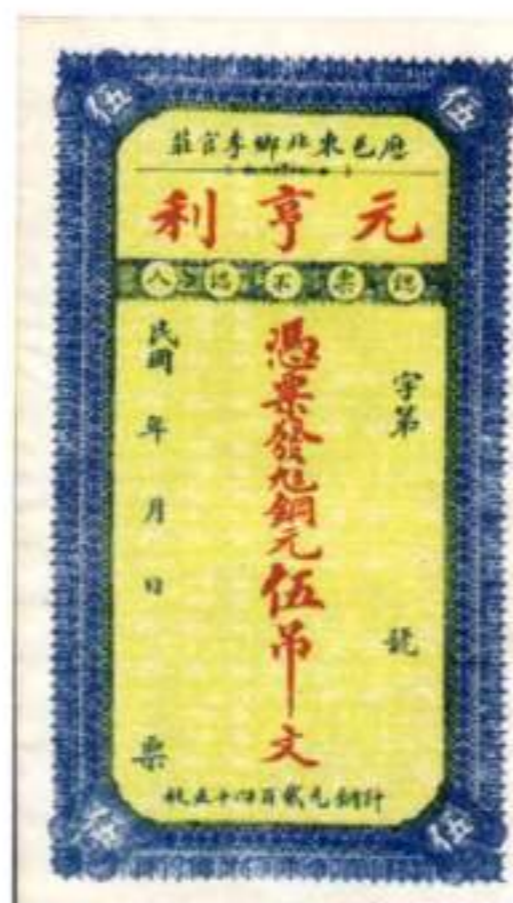 伍 伍
厯邑東北鄉李官莊
元亨利
認票不認人
字第 號
憑票發銅元伍吊文
民國 年 月 日 票
計銅元貳百四十五枚
伍 伍